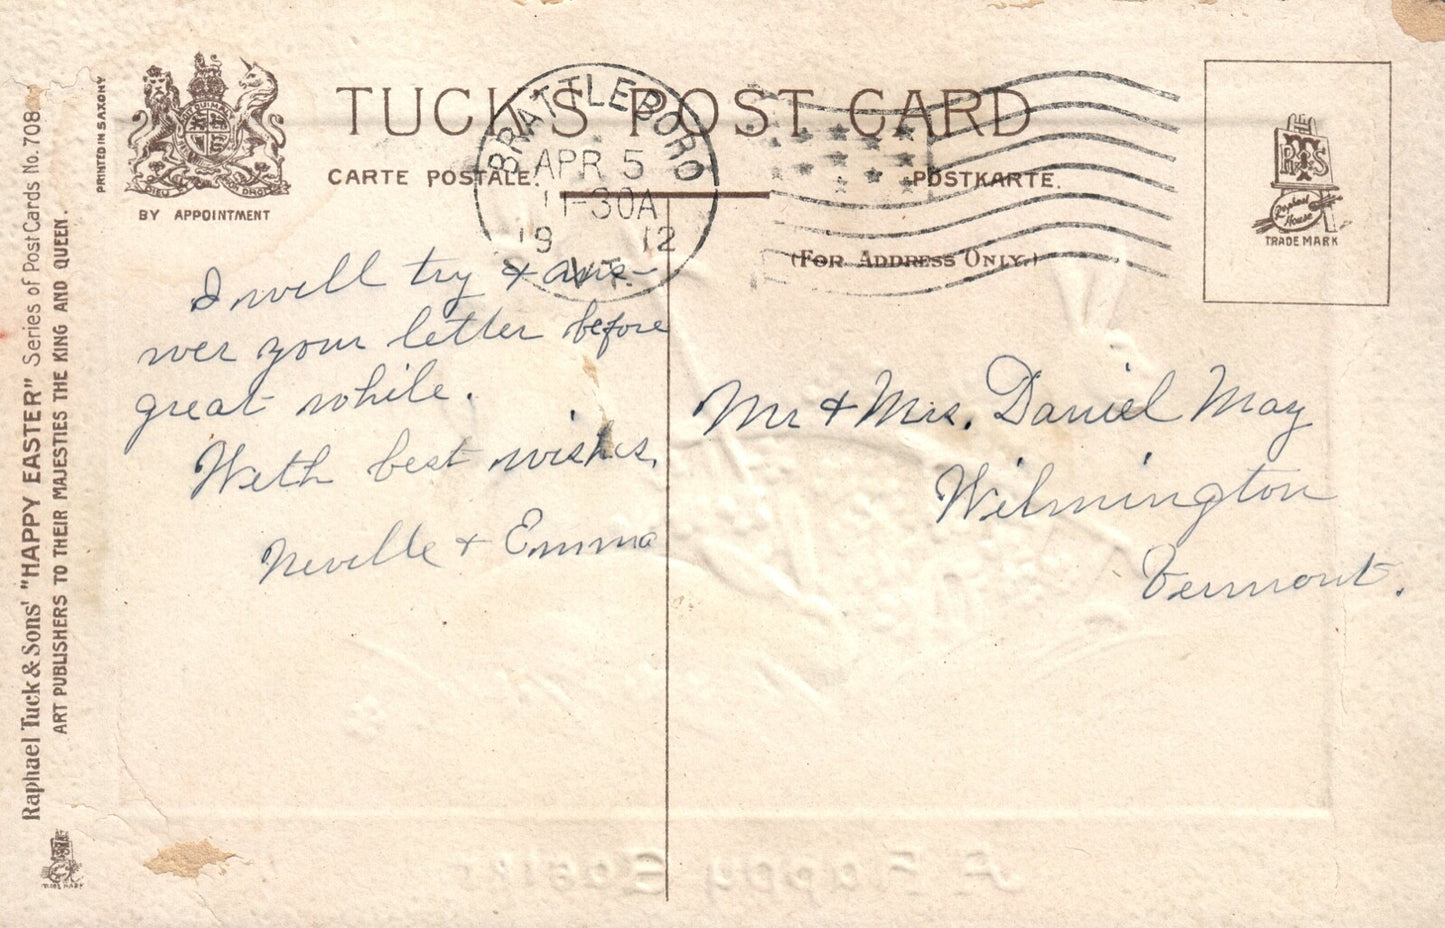 TUCK'S POST CARD
CARTE POSTALE.
POSTKARTE.
(FOR ADDRESS ONLY.)
BY APPOINTMENT
PRINTED IN SAXONY
BRATTLEBORO
APR 5
11-30A
19 12
VT.
R T & S
Raphael
House
TRADE MARK
I will try & ans-
wer your letter before
great while.
With best wishes,
Neville & Emma
Mr & Mrs. Daniel May
Wilmington
Vermont.
Raphael Tuck & Sons' "HAPPY EASTER" Series of Post Cards No. 708
ART PUBLISHERS TO THEIR MAJESTIES THE KING AND QUEEN.
A Happy Easter